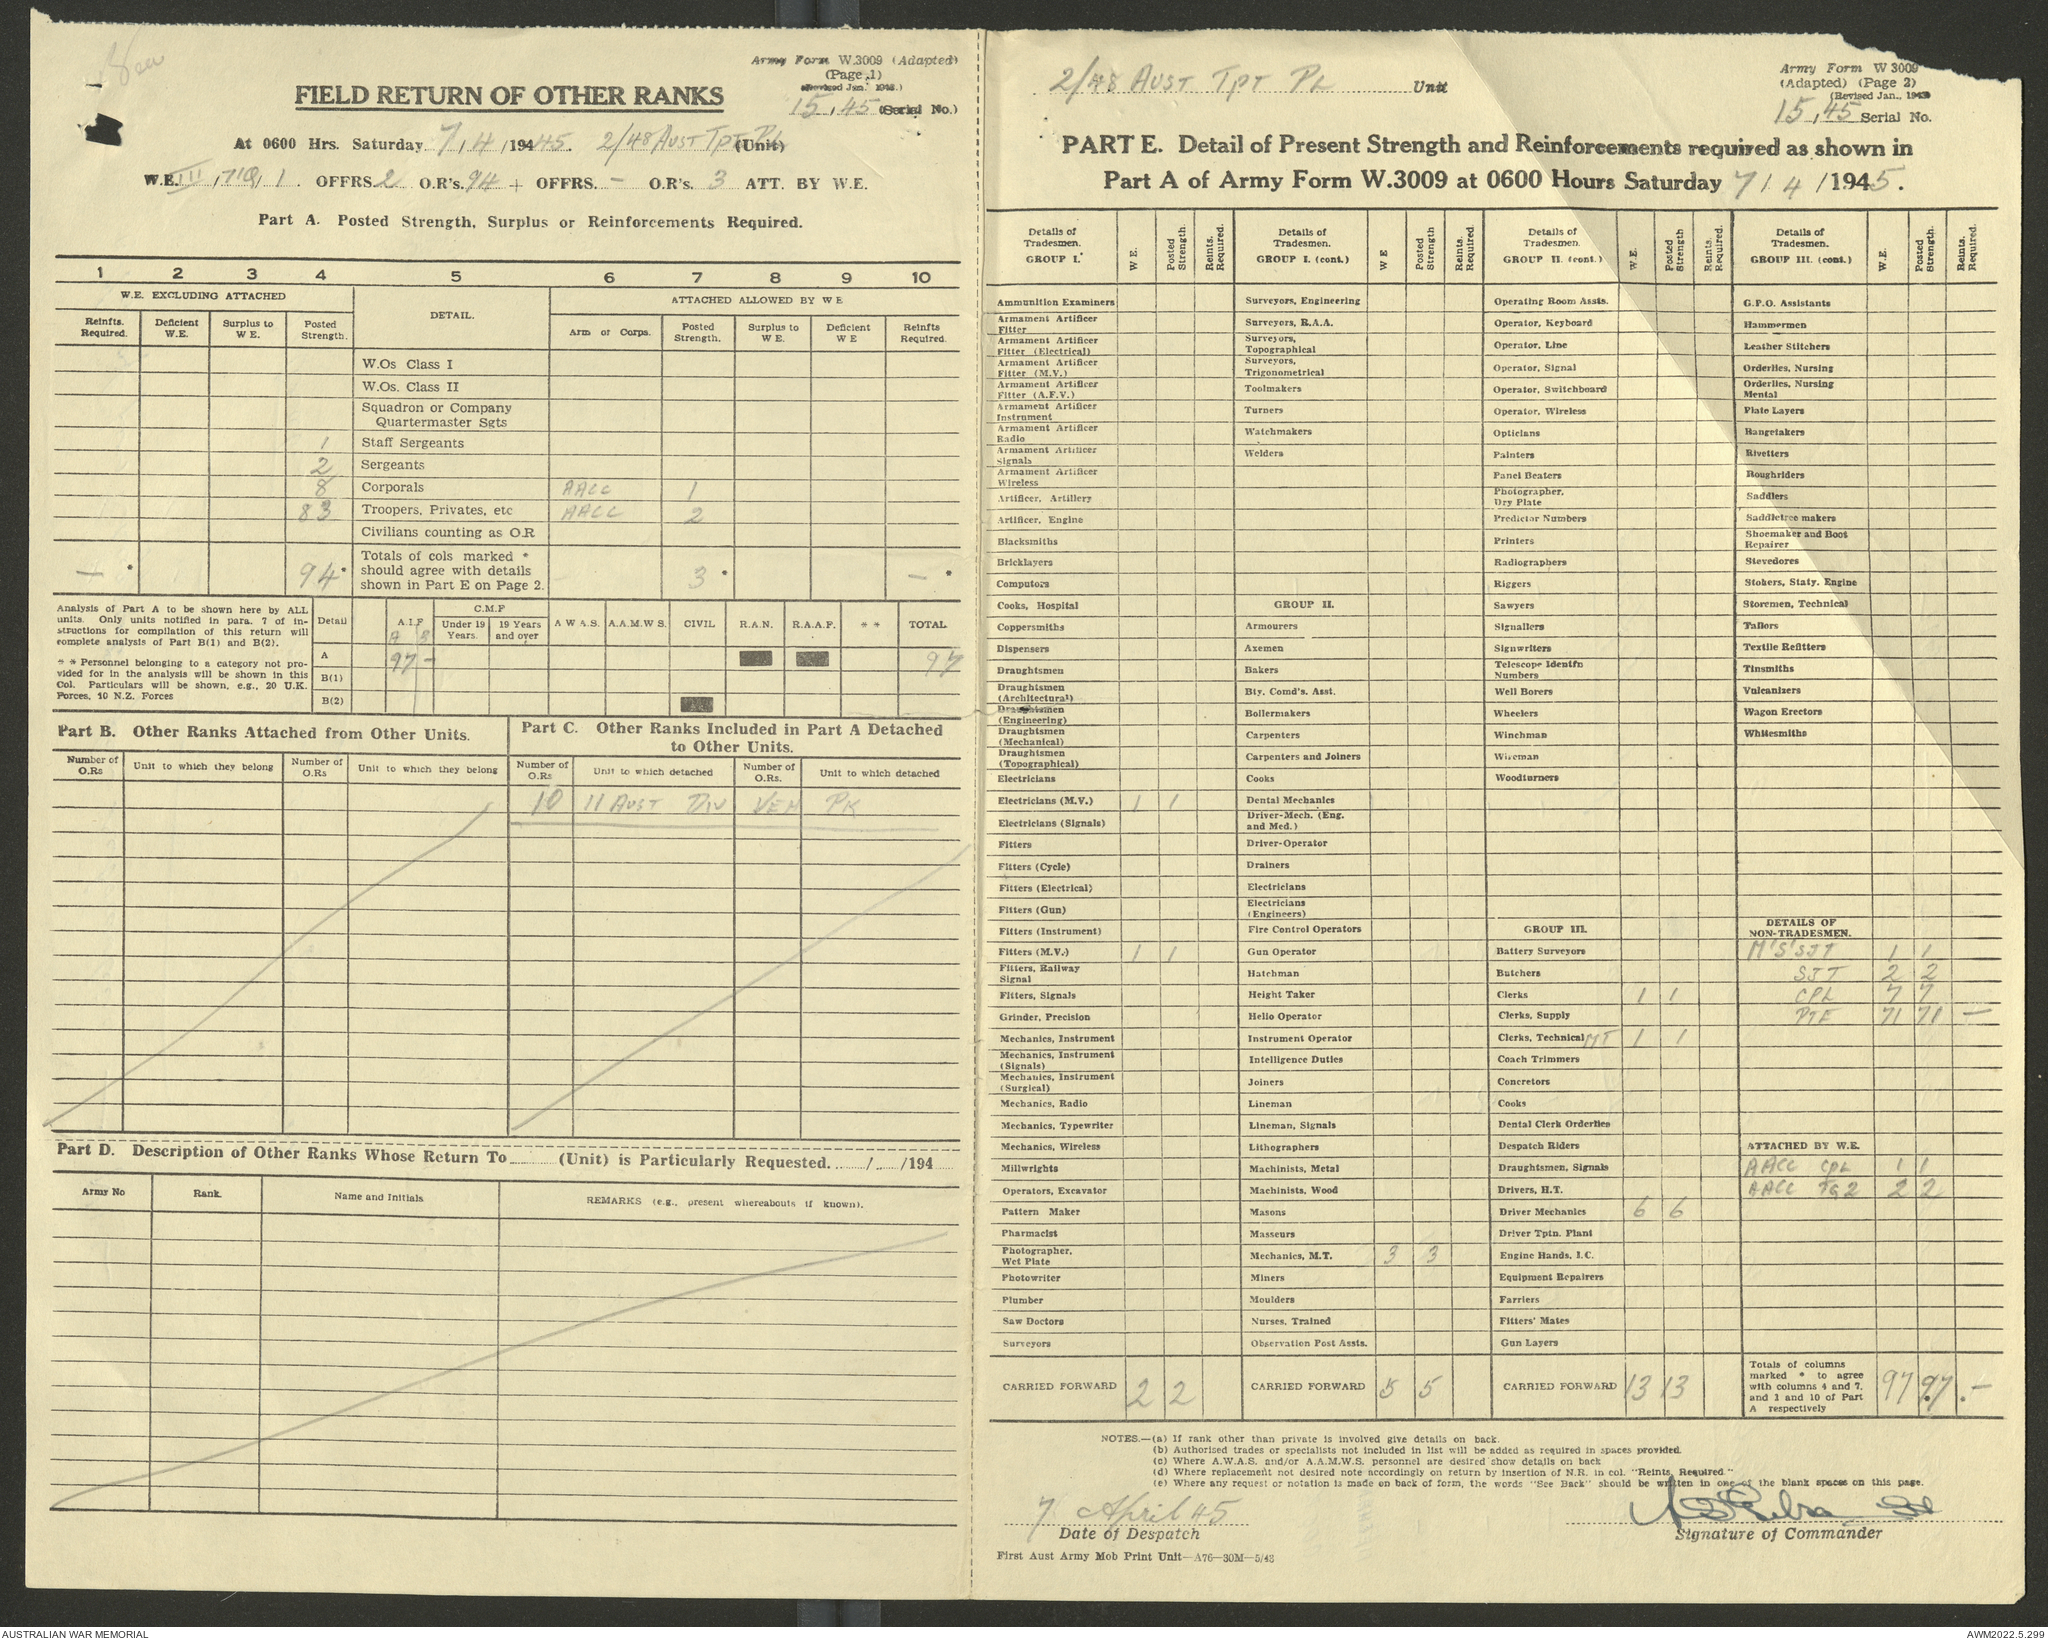 Army Form W.3009 (Adapted)
(Page 1)
(Revised Jan. 1943.)
FIELD RETURN OF OTHER RANKS
15.45 (Serial No.)
At 0600 Hrs. Saturday 7/4/1945. 2/48 AUST TPT PL (Unit)
W.E. III, 1 . OFFRS 2 O.R's. 94 + OFFRS. - O.R's. 3 ATT. BY W.E.
Part A. Posted Strength, Surplus or Reinforcements Required.
1 2 3 4 5 6 7 8 9 10
W.E. EXCLUDING ATTACHED DETAIL. ATTACHED ALLOWED BY W E
Reinfts. Required. Deficient W.E. Surplus to W E. Posted Strength. Arm or Corps. Posted Strength. Surplus to W E. Deficient W E Reinfts Required.
W.Os Class I
W.Os. Class II
Squadron or Company
Quartermaster Sgts
1 Staff Sergeants
2 Sergeants
8 Corporals AACC 1
83 Troopers, Privates, etc AACC 2
Civilians counting as O.R
Totals of cols marked *
should agree with details
shown in Part E on Page 2.
— * 94 * 3 * — *
Analysis of Part A to be shown here by ALL
units. Only units notified in para. 7 of in-
structions for compilation of this return will
complete analysis of Part B(1) and B(2).
* * Personnel belonging to a category not pro-
vided for in the analysis will be shown in this
Col. Particulars will be shown, e.g., 20 U.K.
Forces, 10 N.Z. Forces
Detail A.I.F C.M.F Under 19 Years. 19 Years and over A W A S. A.A.M.W S. CIVIL R.A.N. R.A.A.F. * * TOTAL
A B
A 97 - 97
B(1)
B(2)
Part B. Other Ranks Attached from Other Units.
Number of O.Rs Unit to which they belong Number of O.Rs Unit to which they belong
Part C. Other Ranks Included in Part A Detached
to Other Units.
Number of O.Rs Unit to which detached Number of O.Rs. Unit to which detached
10 11 AUST DIV VEH PK
Part D. Description of Other Ranks Whose Return To (Unit) is Particularly Requested. / /194
Army No Rank. Name and Initials REMARKS (e.g., present whereabouts if known).
2/48 AUST TPT PL Unit
Army Form W 3009
(Adapted) (Page 2)
(Revised Jan., 1943
15.45 Serial No.
PART E. Detail of Present Strength and Reinforcements required as shown in
Part A of Army Form W.3009 at 0600 Hours Saturday 7/4/1945.
Details of Tradesmen. GROUP I. W E. Posted Strength. Reints. Required.
Ammunition Examiners
Armament Artificer Fitter
Armament Artificer Fitter (Electrical)
Armament Artificer Fitter (M.V.)
Armament Artificer Fitter (A.F.V.)
Armament Artificer Instrument
Armament Artificer Radio
Armament Artificer Signals
Armament Artificer Wireless
Artificer, Artillery
Artificer, Engine
Blacksmiths
Bricklayers
Computors
Cooks, Hospital
Coppersmiths
Dispensers
Draughtsmen
Draughtsmen (Architectural)
Draughtsmen (Engineering)
Draughtsmen (Mechanical)
Draughtsmen (Topographical)
Electricians
Electricians (M.V.) 1 1
Electricians (Signals)
Fitters
Fitters (Cycle)
Fitters (Electrical)
Fitters (Gun)
Fitters (Instrument)
Fitters (M.V.) 1 1
Fitters, Railway Signal
Fitters, Signals
Grinder, Precision
Mechanics, Instrument
Mechanics, Instrument (Signals)
Mechanics, Instrument (Surgical)
Mechanics, Radio
Mechanics, Typewriter
Mechanics, Wireless
Millwrights
Operators, Excavator
Pattern Maker
Pharmacist
Photographer, Wet Plate
Photowriter
Plumber
Saw Doctors
Surveyors
CARRIED FORWARD 2 2
Details of Tradesmen. GROUP I. (cont.) W E Posted Strength Reints. Required.
Surveyors, Engineering
Surveyors, R.A.A.
Surveyors, Topographical
Surveyors, Trigonometrical
Toolmakers
Turners
Watchmakers
Welders
GROUP II.
Armourers
Axemen
Bakers
Bty. Comd's. Asst.
Boilermakers
Carpenters
Carpenters and Joiners
Cooks
Dental Mechanics
Driver-Mech. (Eng. and Med.)
Driver-Operator
Drainers
Electricians
Electricians (Engineers)
Fire Control Operators
Gun Operator
Hatchman
Height Taker
Helio Operator
Instrument Operator
Intelligence Duties
Joiners
Lineman
Lineman, Signals
Lithographers
Machinists, Metal
Machinists, Wood
Masons
Masseurs
Mechanics, M.T. 3 3
Miners
Moulders
Nurses, Trained
Observation Post Assts.
CARRIED FORWARD 5 5
Details of Tradesmen. GROUP II. (cont.) W.E. Posted Strength Reints. Required.
Operating Room Assts.
Operator, Keyboard
Operator, Line
Operator, Signal
Operator, Switchboard
Operator, Wireless
Opticians
Painters
Panel Beaters
Photographer, Dry Plate
Predictor Numbers
Printers
Radiographers
Riggers
Sawyers
Signallers
Signwriters
Telescope Identfn Numbers
Well Borers
Wheelers
Winchman
Wireman
Woodturners
GROUP III.
Battery Surveyors
Butchers
Clerks 1 1
Clerks, Supply
Clerks, Technical MT 1 1
Coach Trimmers
Concretors
Cooks
Dental Clerk Orderlies
Despatch Riders
Draughtsmen, Signals
Drivers, H.T.
Driver Mechanics 6 6
Driver Tptn. Plant
Engine Hands, I.C.
Equipment Repairers
Farriers
Fitters' Mates
Gun Layers
CARRIED FORWARD 13 13
Details of Tradesmen. GROUP III. (cont.) W.E. Posted Strength. Reints. Required.
G.P.O. Assistants
Hammermen
Leather Stitchers
Orderlies, Nursing
Orderlies, Nursing Mental
Plate Layers
Rangetakers
Rivetters
Roughriders
Saddlers
Saddletree makers
Shoemaker and Boot Repairer
Stevedores
Stokers, Staty. Engine
Storemen, Technical
Tailors
Textile Refitters
Tinsmiths
Vulcanizers
Wagon Erectors
Whitesmiths
DETAILS OF
NON-TRADESMEN.
1 1
SJT 2 2
CPL 7 7
PTE 71 71 —
ATTACHED BY W.E.
AACC CPL 1 1
AACC TG2 2 2
Totals of columns
marked * to agree
with columns 4 and 7,
and 1 and 10 of Part
A respectively
97 97 . —
NOTES.—(a) If rank other than private is involved give details on back.
(b) Authorised trades or specialists not included in list will be added as required in spaces provided.
(c) Where A.W.A.S. and/or A.A.M.W.S. personnel are desired show details on back
(d) Where replacement not desired note accordingly on return by insertion of N.R. in col. "Reints. Required."
(e) Where any request or notation is made on back of form, the words "See Back" should be written in one of the blank spaces on this page.
7 April 45
Date of Despatch
Signature of Commander
First Aust Army Mob Print Unit—A76—30M—5/43
AUSTRALIAN WAR MEMORIAL
AWM2022.5.299